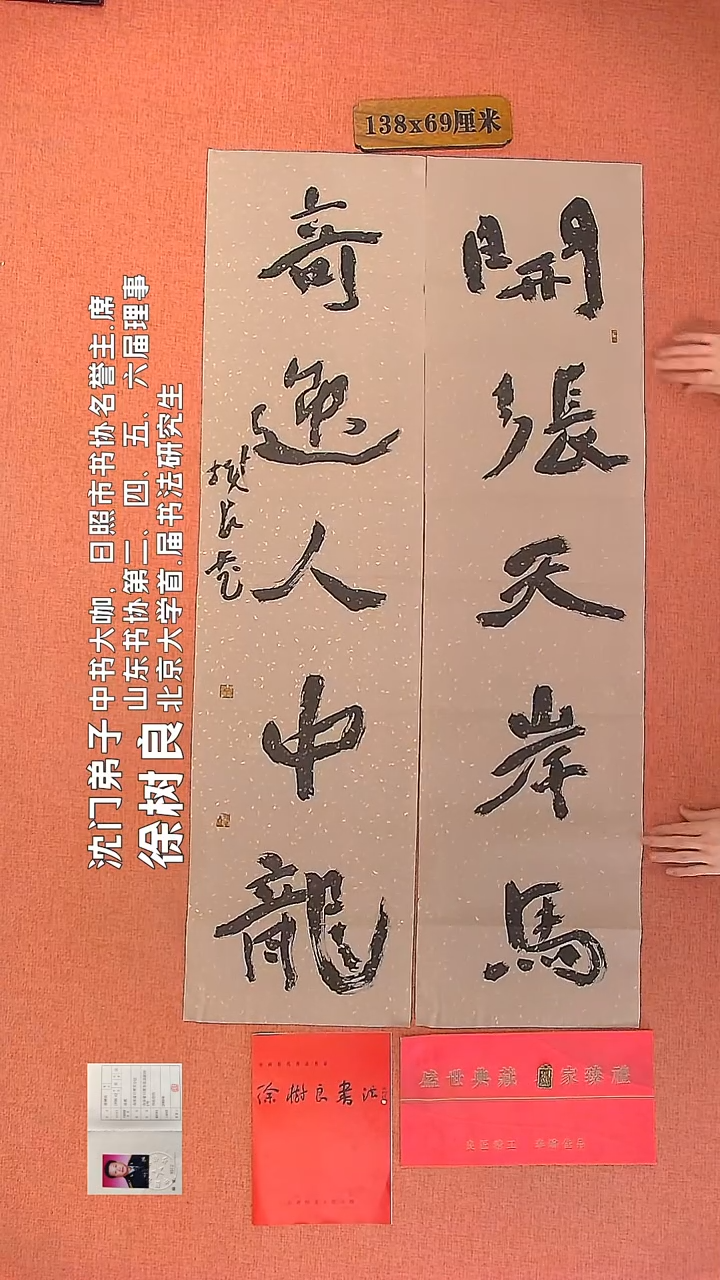 138x69厘米
開張天岸馬
奇逸人中龍
樹良書
沈门弟子
中书大咖，日照市书协名誉主.席
山东书协第二、四、五、六届理事
徐树良
北京大学首.届书法研究生
徐樹良書法
盛世典藏 國家臻禮